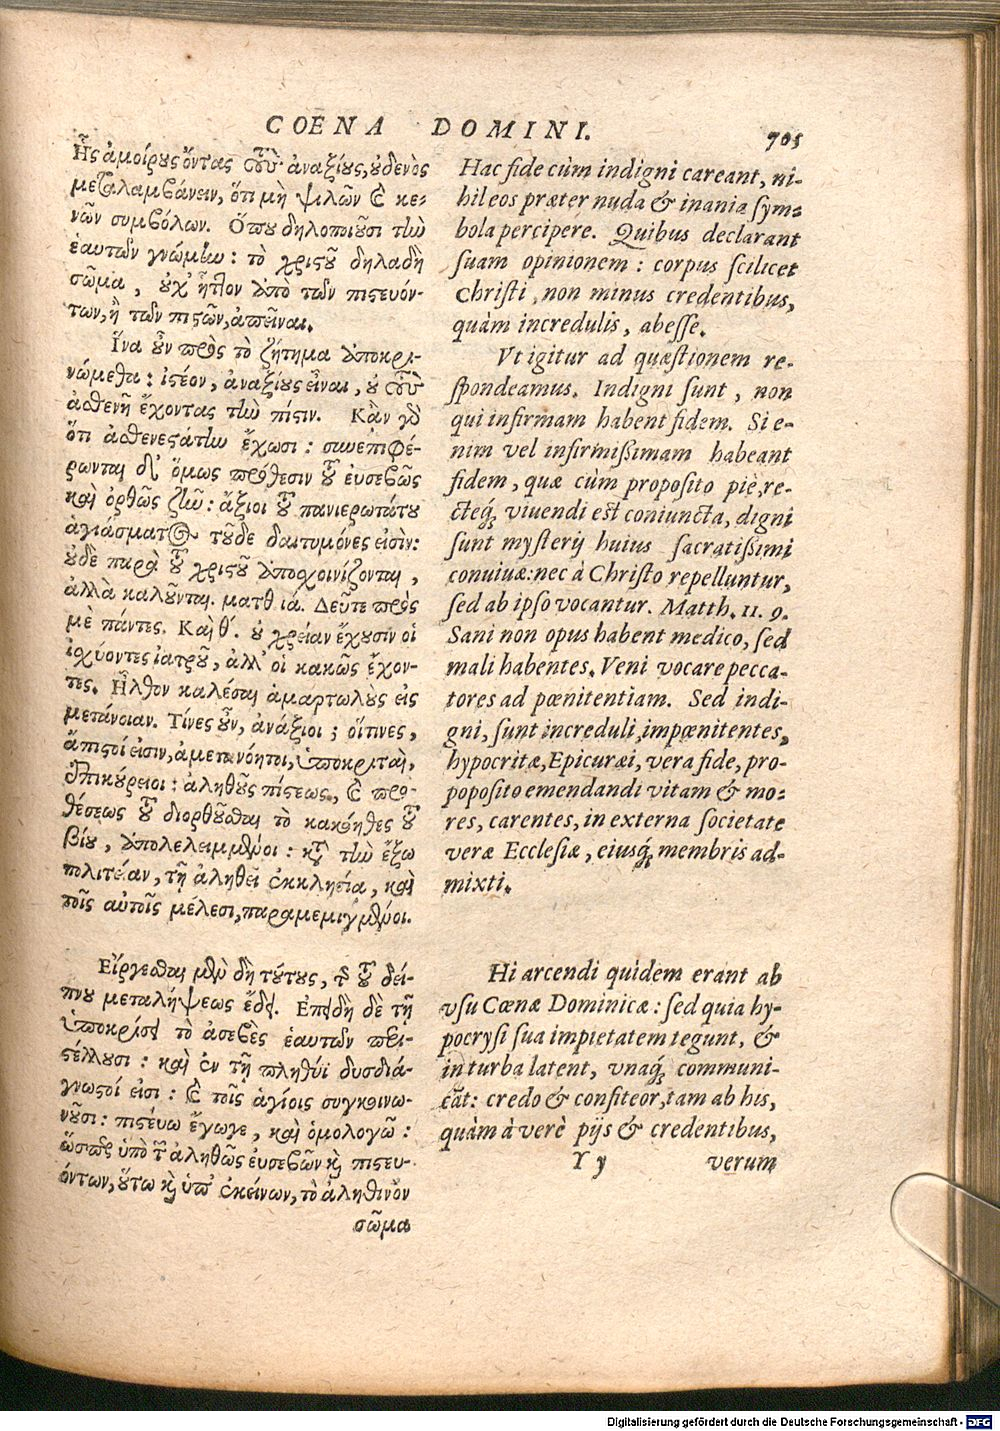 COENA DOMINI.
705
Ἧς ἀμοίρους ὄντας τοὺς ἀναξίους, οὐδενὸς
μεταλαμβάνειν, ὅτι μὴ ψιλῶν καὶ κε-
νῶν συμβόλων. Ὅπου δηλοποιοῦσι τὴν
ἑαυτῶν γνώμην: τὸ χριστοῦ δηλαδὴ
σῶμα, οὐχ' ἧττον ἀπὸ τῶν πιστευόν-
των, ἢ τῶν πιστῶν, ἀπεῖναι.
Ἵνα οὖν πρὸς τὸ ζήτημα ἀποκρι-
νώμεθα: ἰστέον, ἀναξίους εἶναι, οὐ τοὺς
ἀσθενῆ ἔχοντας τὴν πίστιν. Κἂν γὸ
ὅτι ἀσθενεστάτην ἔχωσι: συνεπιφέ-
ρωνται δ' ὅμως πρόθεσιν τοῦ εὐσεβῶς
καὶ ὀρθῶς ζῆν: ἄξιοι τοῦ πανιερωτάτου
ἁγιάσματος τοῦδε δαιτυμόνες εἰσὶν:
οὐδὲ παρὰ τοῦ χριστοῦ ἀποσχοινίζονται,
ἀλλὰ καλοῦνται. ματθ ιά. Δεῦτε πρὸς
μὲ πάντες. Καὶ θ'. οὐ χρείαν ἔχουσιν οἱ
ἰσχύοντες ἰατροῦ, ἀλλ' οἱ κακῶς ἔχον-
τες. Ἦλθον καλέσαι ἁμαρτωλοὺς εἰς
μετάνοιαν. Τίνες οὖν, ἀνάξιοι; οἵτινες,
ἄπιστοί εἰσιν, ἀμετανόητοι, ὑποκριταὶ,
ἐπικούρειοι: ἀληθοῦς πίστεως, καὶ προ-
θέσεως τοῦ διορθοῦσθαι τὸ κακόηθες τοῦ
βίου, ἀπολελειμμένοι: κατὰ τὴν ἔξω
πολιτείαν, τῇ ἀληθεῖ ἐκκλησία, καὶ
τοῖς αὐτοῖς μέλεσι, παραμεμιγμένοι.
Εἴργεσθαι μὲν δὴ τούτους, τῆς τοῦ δεί-
πνου μεταλήψεως ἔδει. Ἐπειδὴ δὲ τῇ
ὑποκρίσει τὸ ἀσεβὲς ἑαυτῶν περι-
στέλλουσι: καὶ ἐν τῇ πληθύϊ δυσδιά-
γνωστοί εἰσι: καὶ τοῖς ἁγίοις συγκοινω-
νοῦσι: πιστεύω ἔγωγε, καὶ ὁμολογῶ:
ὥσπερ ὑπὸ τῶν ἀληθῶς εὐσεβῶν καὶ πιστευ-
όντων, οὕτω καὶ ὑπ' ἐκείνων, τὸ ἀληθινὸν
σῶμα
Hac fide cùm indigni careant, ni-
hil eos præter nuda & inania sym-
bola percipere. Quibus declarant
suam opinionem: corpus scilicet
Christi, non minus credentibus,
quàm incredulis, abesse.
Vt igitur ad quæstionem re-
spondeamus. Indigni sunt, non
qui infirmam habent fidem. Si e-
nim vel infirmißimam habeant
fidem, quæ cùm proposito piè, re-
ctéq́; viuendi est coniuncta, digni
sunt mysterij huius sacratißimi
conuiuæ: nec à Christo repelluntur,
sed ab ipso vocantur. Matth. 11. 9.
Sani non opus habent medico, sed
mali habentes. Veni vocare pecca-
tores ad pœnitentiam. Sed indi-
gni, sunt increduli, impœnitentes,
hypocritæ, Epicuræi, vera fide, pro-
poposito emendandi vitam & mo-
res, carentes, in externa societate
veræ Ecclesiæ, eiusq́; membris ad-
mixti.
Hi arcendi quidem erant ab
vsu Cœnæ Dominicæ: sed quia hy-
pocrysi sua impietatem tegunt, &
in turba latent, vnaq́; communi-
cāt: credo & confiteor, tam ab his,
quàm à verè pijs & credentibus,
Y y
verum
Digitalisierung gefördert durch die Deutsche Forschungsgemeinschaft - DFG